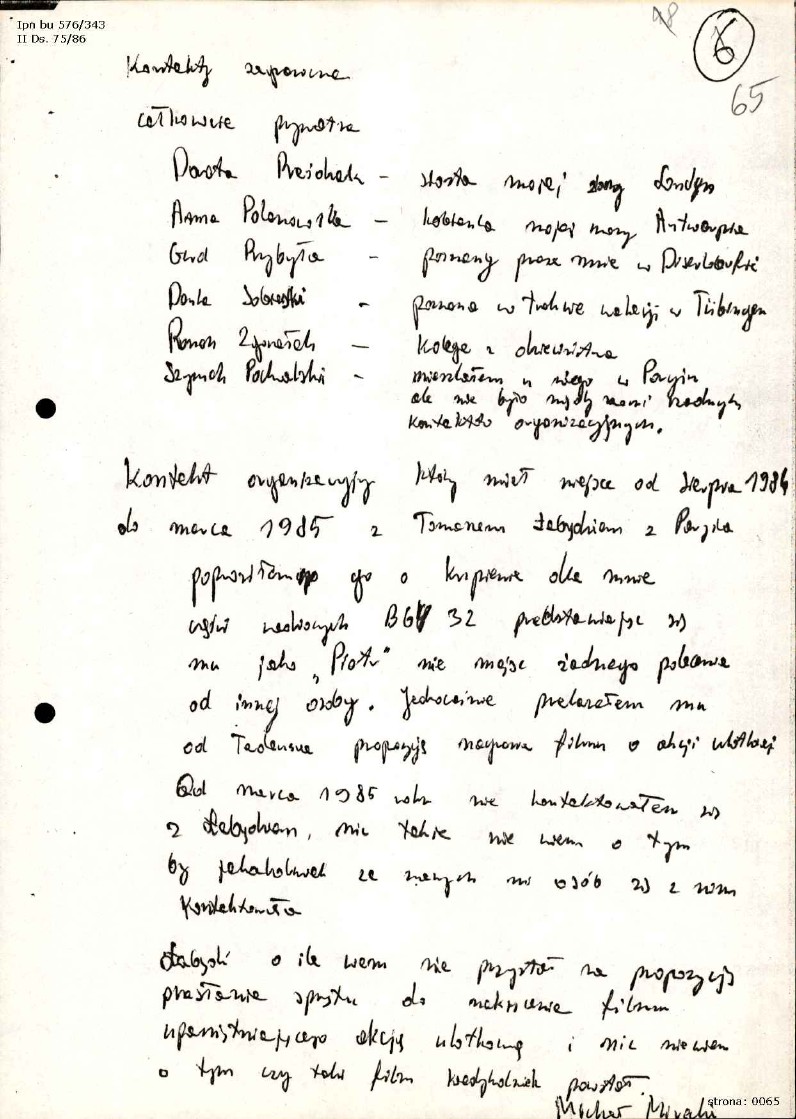 Ipn bu 576/343
II Ds. 75/86
6
65
Kontakty
całkowicie prywatne
Dorota - siostra mojej żony Londyn
Anna Polanowska - koleżanka mojej mamy Antwerpia
Gerd Przybyła - poznany przeze mnie w
- poznana w trakcie wakacji w Tübingen
Roman - kolega z dzieciństwa
- mieszkałem u niego w Paryżu
ale nie było między nami żadnych
kontaktów organizacyjnych.
Kontakt organizacyjny który miał miejsce od sierpnia 1984
do marca 1985 z Tomaszem Łabędziem z Paryża
poprosiłem go o kupienie dla mnie
części 32 przedstawiając się
mu jako „Piotr" nie mając żadnego polecenia
od innej osoby. Jednocześnie przekazałem mu
od Tadeusza propozycję filmu o akcji ulotkowej
Od marca 1985 roku nie kontaktowałem się
z Łabędziem, nic także nie wiem o tym
by ktokolwiek ze znanych mi osób się z nim
kontaktował
Łabędź o ile wiem nie przystał na propozycję
przesłania sprzętu do nakręcenia filmu
upamiętniającego akcję ulotkową i nic nie wiem
o tym czy taki film kiedykolwiek powstał
Michał
strona: 0065